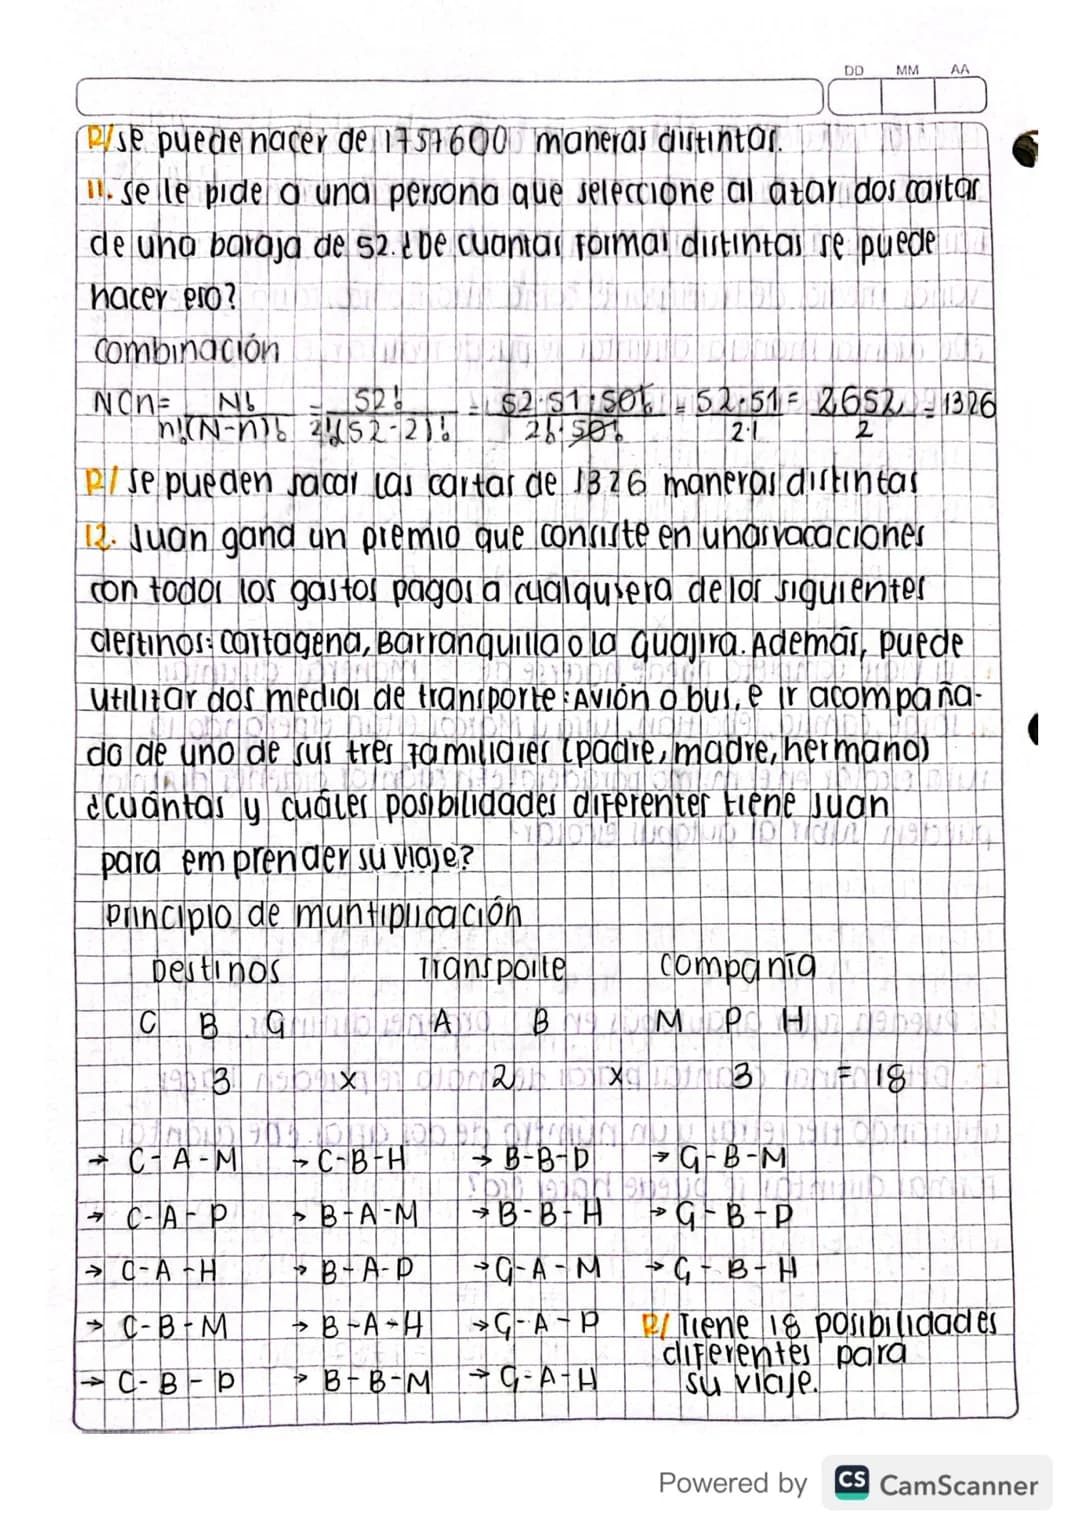 DD MM AA
R/ se puede hacer de 1757600 maneras distintas.
11. se le pide a una persona que seleccione al azar dos cartas
de una baraja de 52. ¿De cuantas formas distintas se puede
hacer eso?
combinación
NCn= N! / n!(N-n)! = 52! / 2!(52-2)! = 52·51·50! / 2!·50! = 52·51 / 2·1 = 2652 / 2 = 1326
R/ se pueden sacar las cartas de 1326 maneras distintas
12. Juan gand un premio que consiste en unas vacaciones
con todos los gastos pagos a cualquiera de los siguientes
destinos: cartagena, Barranquilla o la Guajira. Además, puede
utilizar dos medios de transporte: Avión o bus, e ir acompaña-
do de uno de sus tres familiares (padre, madre, hermano)
¿cuántas y cuáles posibilidades diferentes tiene Juan
para emprender su viaje?
principio de muntiplicación
Destinos Transporte compañía
C B G A B M P H
3 x 2 x 3 = 18
→ C-A-M → C-B-H → B-B-P → G-B-M
→ C-A-P → B-A-M → B-B-H → G-B-P
→ C-A-H → B-A-P → G-A-M → G-B-H
→ C-B-M → B-A-H → G-A-P R/ Tiene 18 posibilidades
diferentes para
→ C-B-P → B-B-M → G-A-H su viaje.
Powered by CS CamScanner